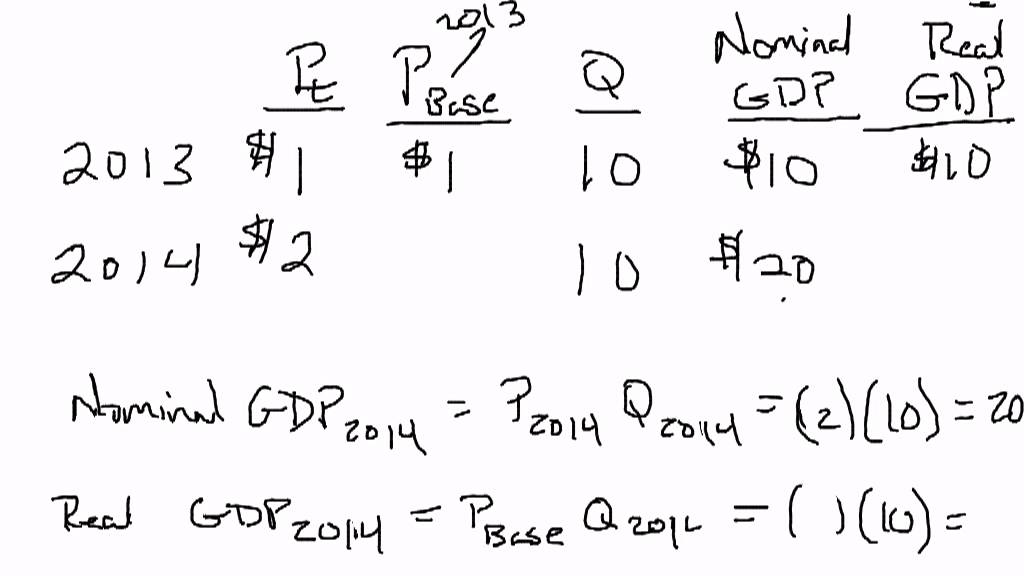 2013
P_t P_Base Q Nominal GDP Real GDP
2013 $1 $1 10 $10 $10
2014 $2 10 $20
Nominal GDP_2014 = P_2014 Q_2014 = (2)(10) = 20
Real GDP_2014 = P_Base Q_201 = ( )(10) =